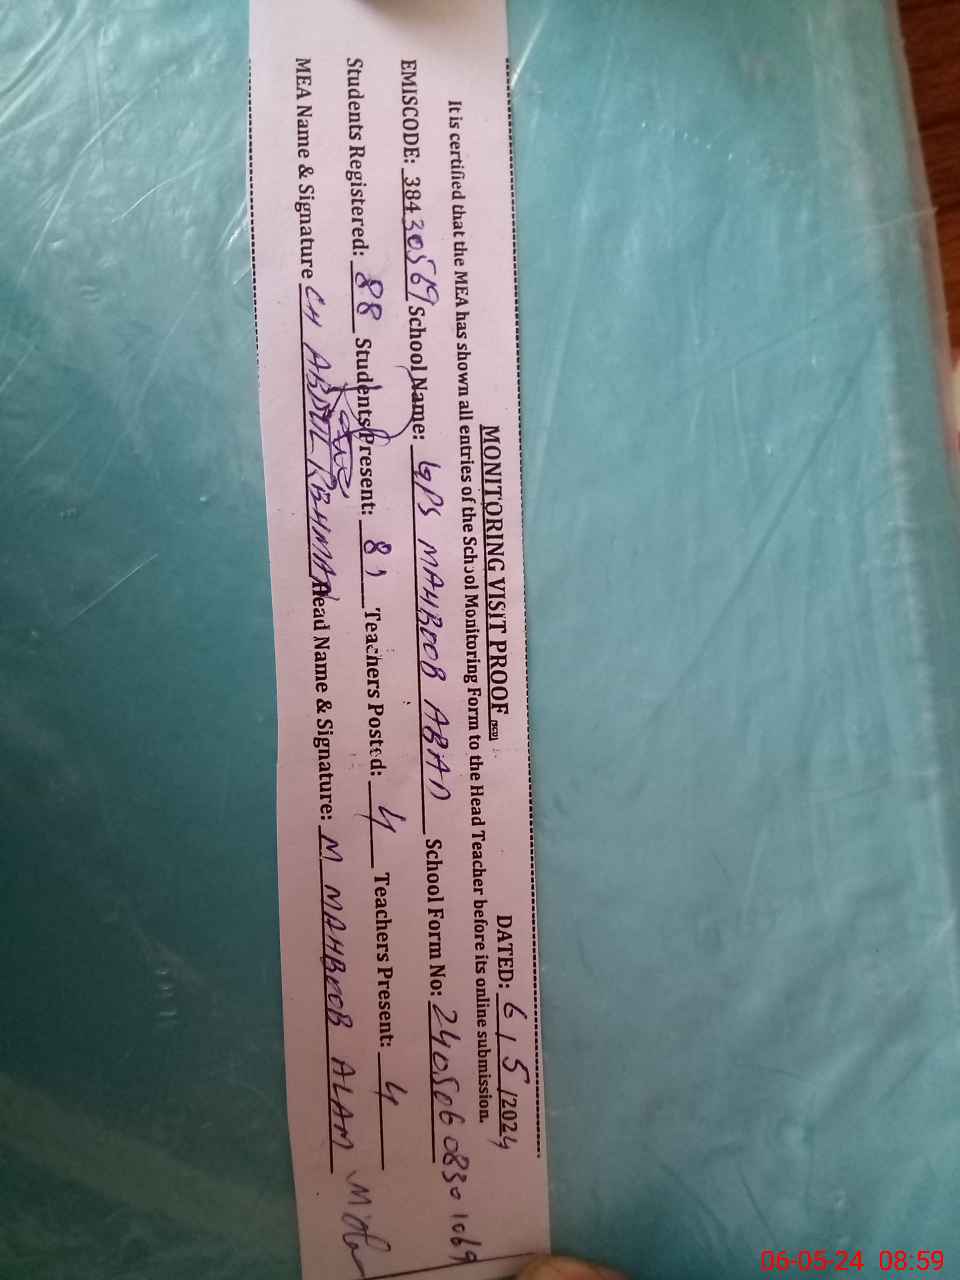 MONITORING VISIT PROOF DATED: 6/5/2024
It is certified that the MEA has shown all entries of the School Monitoring Form to the Head Teacher before its online submission.
EMISCODE: 38430569 School Name: GPS MAHBOOB ABAD School Form No: 2405060830 1069
Students Registered: 88 Students Present: 81 Teachers Posted: 4 Teachers Present: 4
MEA Name & Signature CH ABDUL REHMAN Head Name & Signature: M MAHBOOB ALAM
06-05-24 08:59